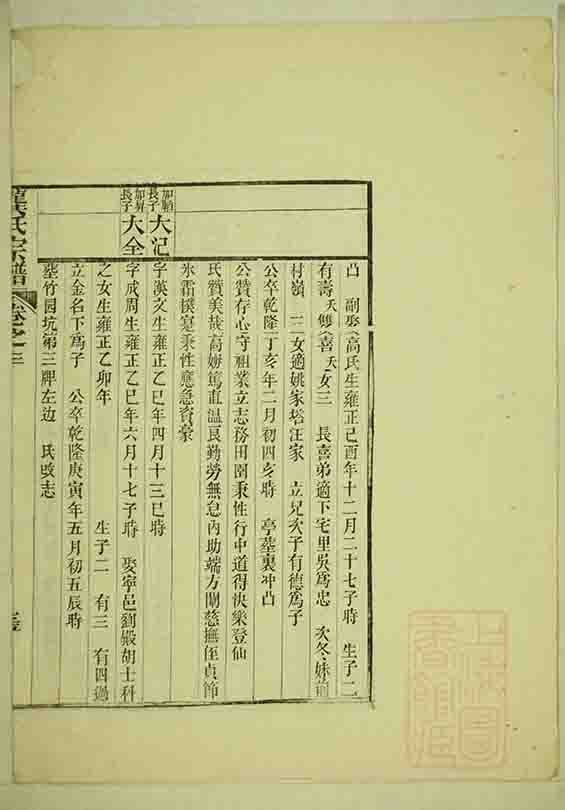 凸 副娶高氏生雍正己酉年十二月二十七子時 生子二
有壽 天 雙喜 天 女三 長喜弟適下宅里吳爲忠 次冬妹前
村嶺 三女適姚家塔汪家 立兄次子有德爲子
公卒乾隆丁亥年二月初四亥時 亭墓裏冲凸
公贊存心守祖業立志務田園秉性行中道得快樂登仙
氏贊美哉高婦篤直温良勤勞無怠內助端方閫慈撫侄貞節
氷霜樸寔秉性應急資豪
加 長子 大汜
字漢文生雍正乙巳年四月十三巳時
加昇長子 大全
字成周生雍正乙巳年六月十七子時 娶寧邑劉殿胡士科
之女生雍正乙卯年 生子二 有三 有四過
立金名下爲子 公卒乾隆庚寅年五月初五辰時
塟竹园坑第三牌左边 氏改志
氏宗譜 卷之三